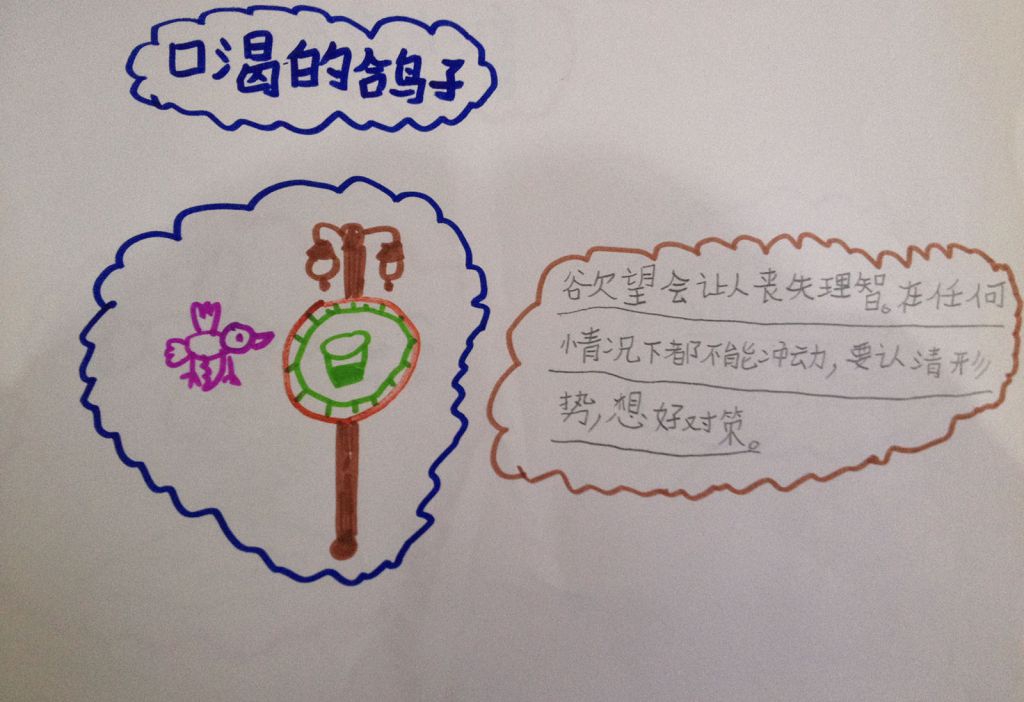 口渴的鸽子
欲望会让人丧失理智。在任何
情况下都不能冲动，要认清形
势，想好对策。